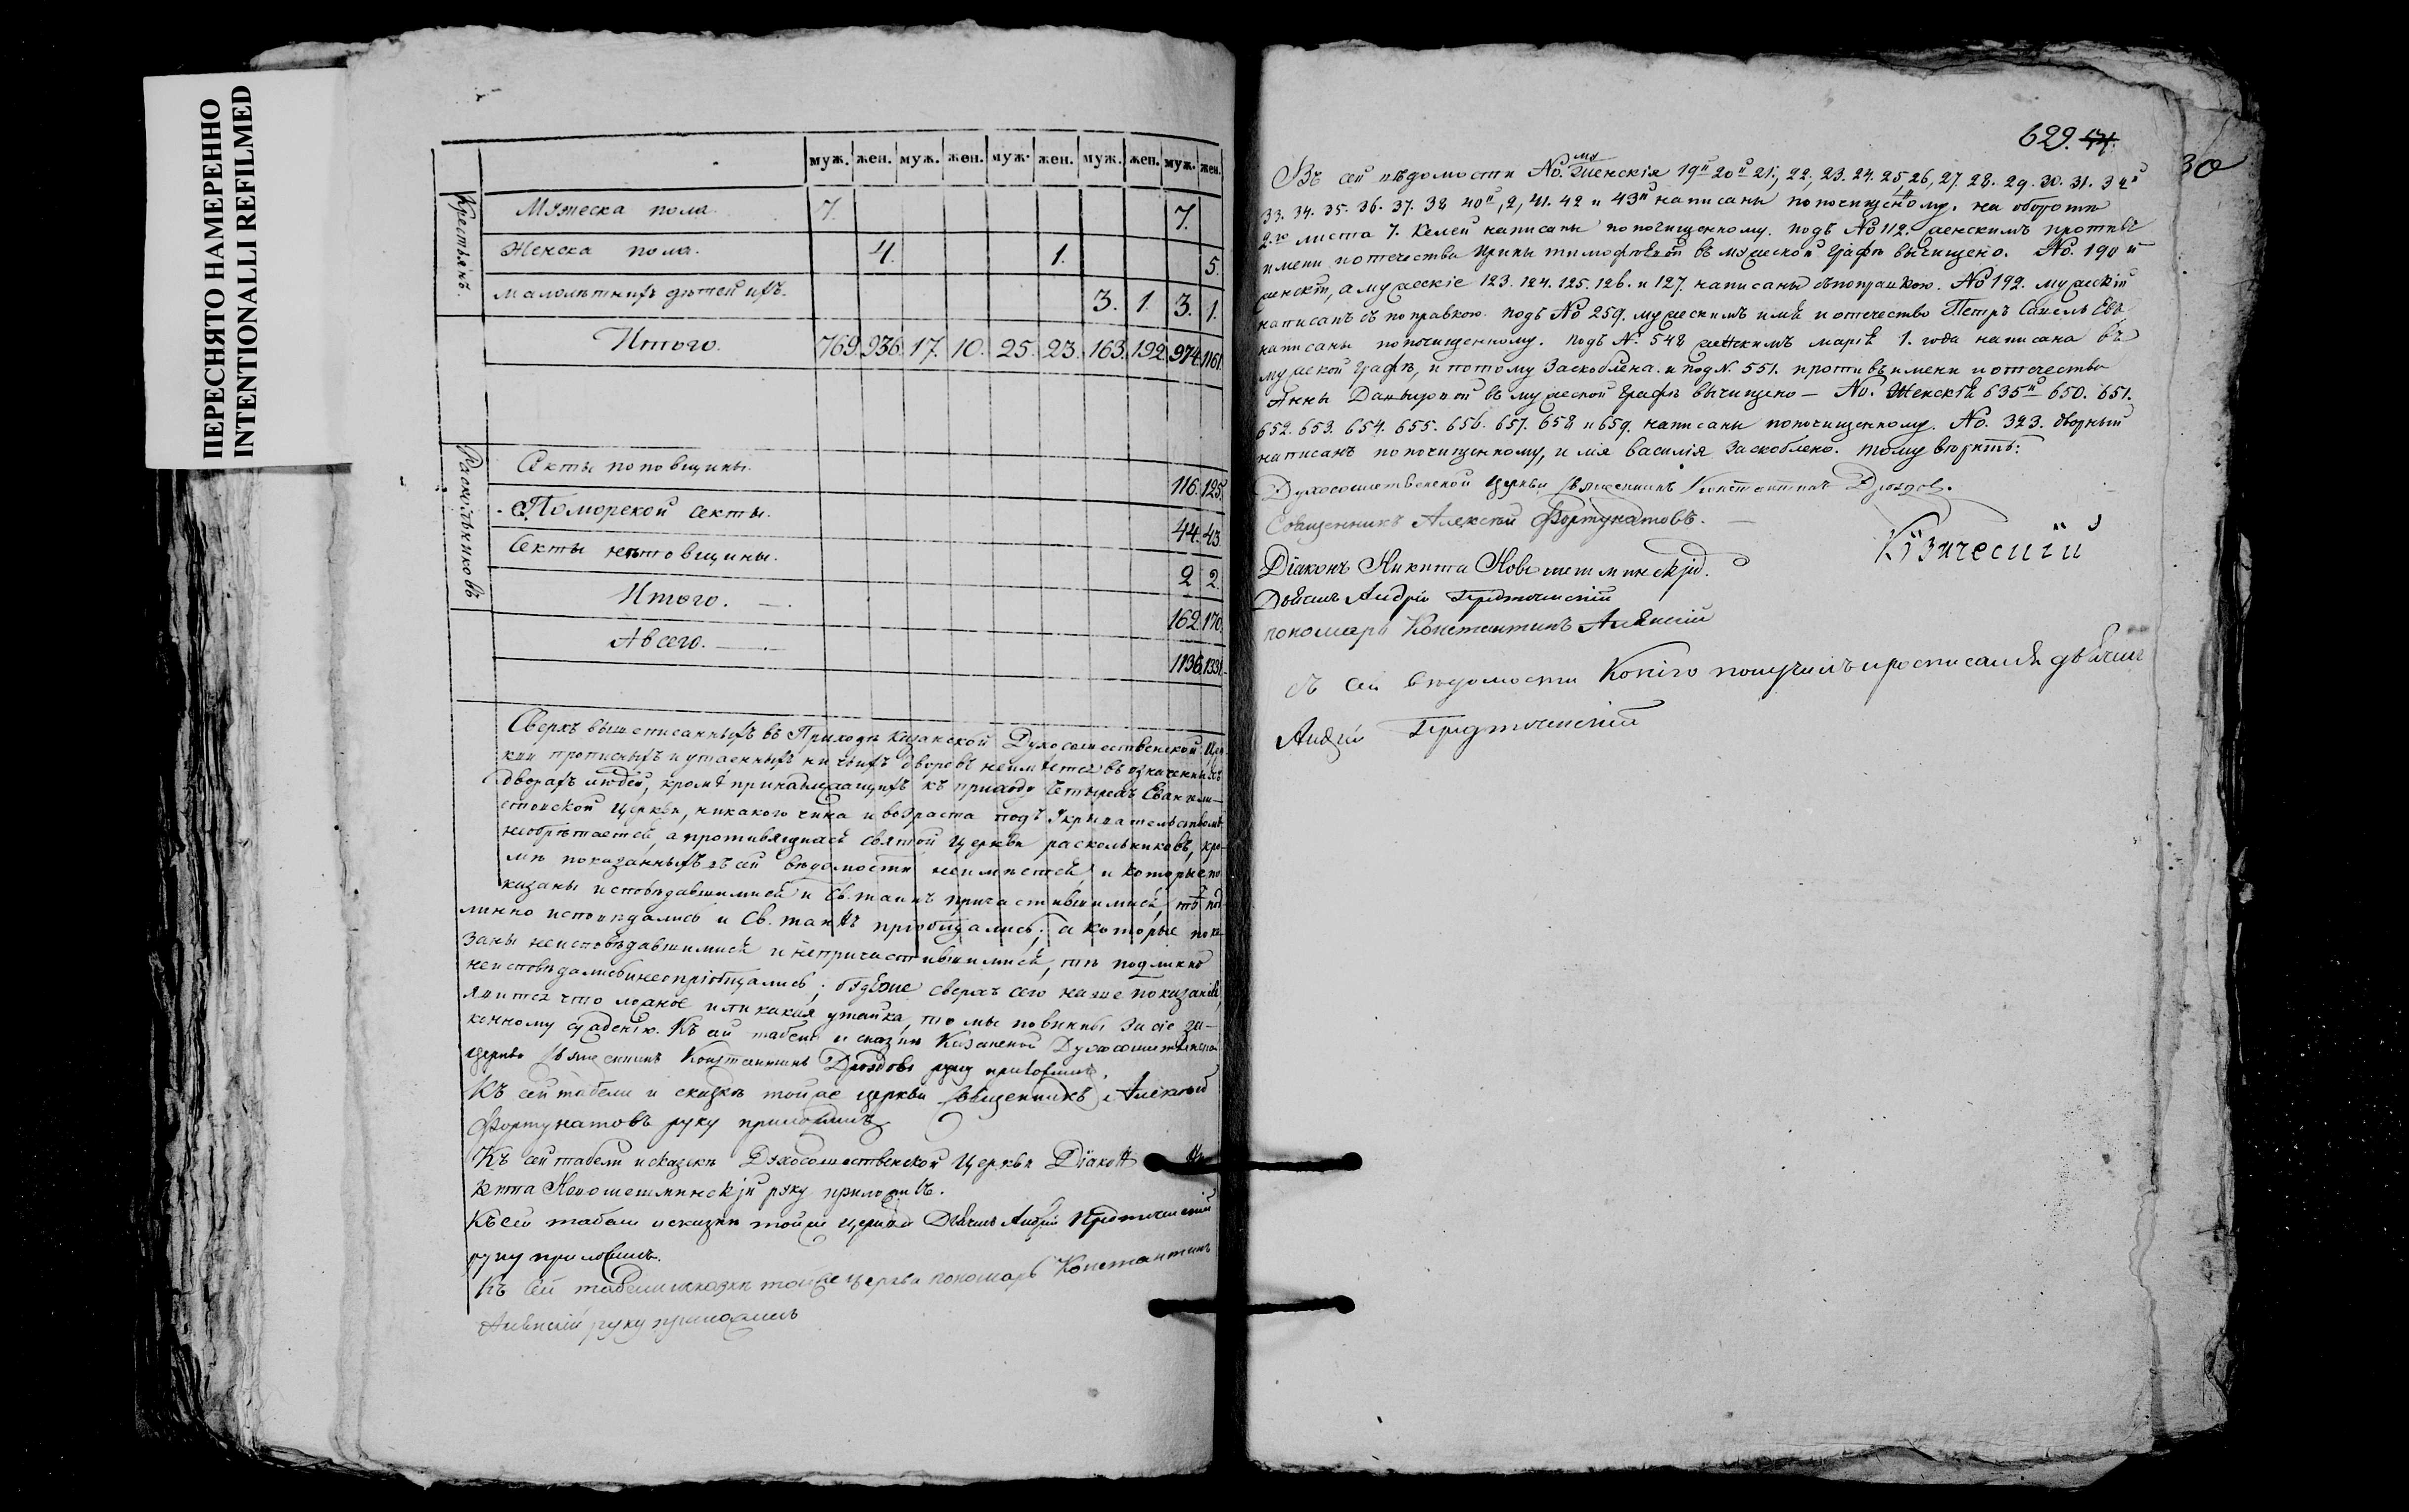 ПЕРЕСНЯТО НАМЕРЕННО
INTENTIONALLI REFILMED
муж. жен. муж. жен. муж. жен. муж. жен. муж. жен.
Крестьянъ.
Мужеска пола. 7. 7.
Женска пола. 4. 1. 5.
Малолѣтнихъ дѣтей ихъ. 3. 1. 3. 1.
Итого. 769. 936. 17. 10. 25. 23. 163. 192. 974. 1161.
Раскольниковъ
Секты поповщины. 116. 125.
Поморской секты. 44. 43.
Секты нѣтовщины. 2. 2.
Итого. 162. 170.
А всего. 1136. 1331.
Сверхъ вышеписанныхъ въ Приходѣ Казанской Духосошественской Цер-
кви прописныхъ и утаенныхъ ни чьихъ дворовъ неимѣется въ означенныхъ
дворахъ людей, кромѣ принадлежащихъ къ приходу Четырехъ Евангели-
стовской церкви, никакого чина и возраста подъ укрывательствомъ
необрѣтается, а противящихся святой церкви раскольниковъ, кро-
мѣ показанныхъ въ сей вѣдомости неимѣется, и которые по-
казаны исповѣдавшимися и Св. таинъ причастившимися, тѣ под-
линно исповѣдались и Св. таинъ пріобщались; а которые пока-
заны неисповѣдавшимися и непричастившимися, тѣ подлинно
неисповѣдались и непріобщались; буде же сверхъ сего наше показанія,
явится что ложное или какая утайка, то мы повинны за сіе за-
конному сужденію. Къ сей табели и сказкѣ Казанской Духосошественской
церкви священникъ Константинъ Дроздовъ руку приложилъ.
Къ сей табели и сказкѣ той же церкви Священникъ Алексѣй
Фортунатовъ руку приложилъ
Къ сей табели и сказкѣ Духосошественской Церкви Діаконъ Ни-
кита Новошешминскій руку приложилъ.
Къ сей табели и сказки той же церкви Дьячекъ Андрей Предтеченскій
руку приложилъ.
Къ сей табели и сказкѣ той же церкви пономарь Константинъ
руку приложилъ
629.
30
Въ сей вѣдомости No. Женскія 19й 20й 21, 22, 23. 24. 25, 26, 27. 28. 29. 30. 31. 32й
33. 34. 35. 36. 37. 38 40й, 2, 41. 42 и 43й написаны по почищенному. на оборотѣ
2го листа 7. Келей написаны по почищенному. подъ No 112. женскимъ противъ
имени и отечества Ирины Тимофѣевой въ мужеской графѣ вычищено. No. 190й
женскій, а мужескіе 123. 124. 125. 126. и 127. написаны съ поправкою. No 192. мужескій
написанъ съ поправкою. подъ No 259. мужескимъ имя и отечество Петръ Савельевъ
написаны по почищенному. подъ No. 548 женскимъ Марія 1. года написана въ
мужской графѣ, и потому заскоблена. и под N. 551. противъ имени и отечества
Анны Давыдовой въ мужеской графѣ вычищено — No. Женскія 635й 650. 651.
652. 653. 654. 655. 656. 657. 658 и 659. написаны по почищенному. No. 323. дворный
написанъ по почищенному, имя Василія заскоблено. тому вѣрить:
Духосошественской церкви священникъ Константинъ Дроздовъ.
Священникъ Алексѣй Фортунатовъ.
Діаконъ Никита Новошешминскій.
Дьячекъ Андрей Предтеченскій
пономарь Константинъ
съ сей вѣдомости Копію получилъ и росписался дьячекъ
Андрей Предтеченскій